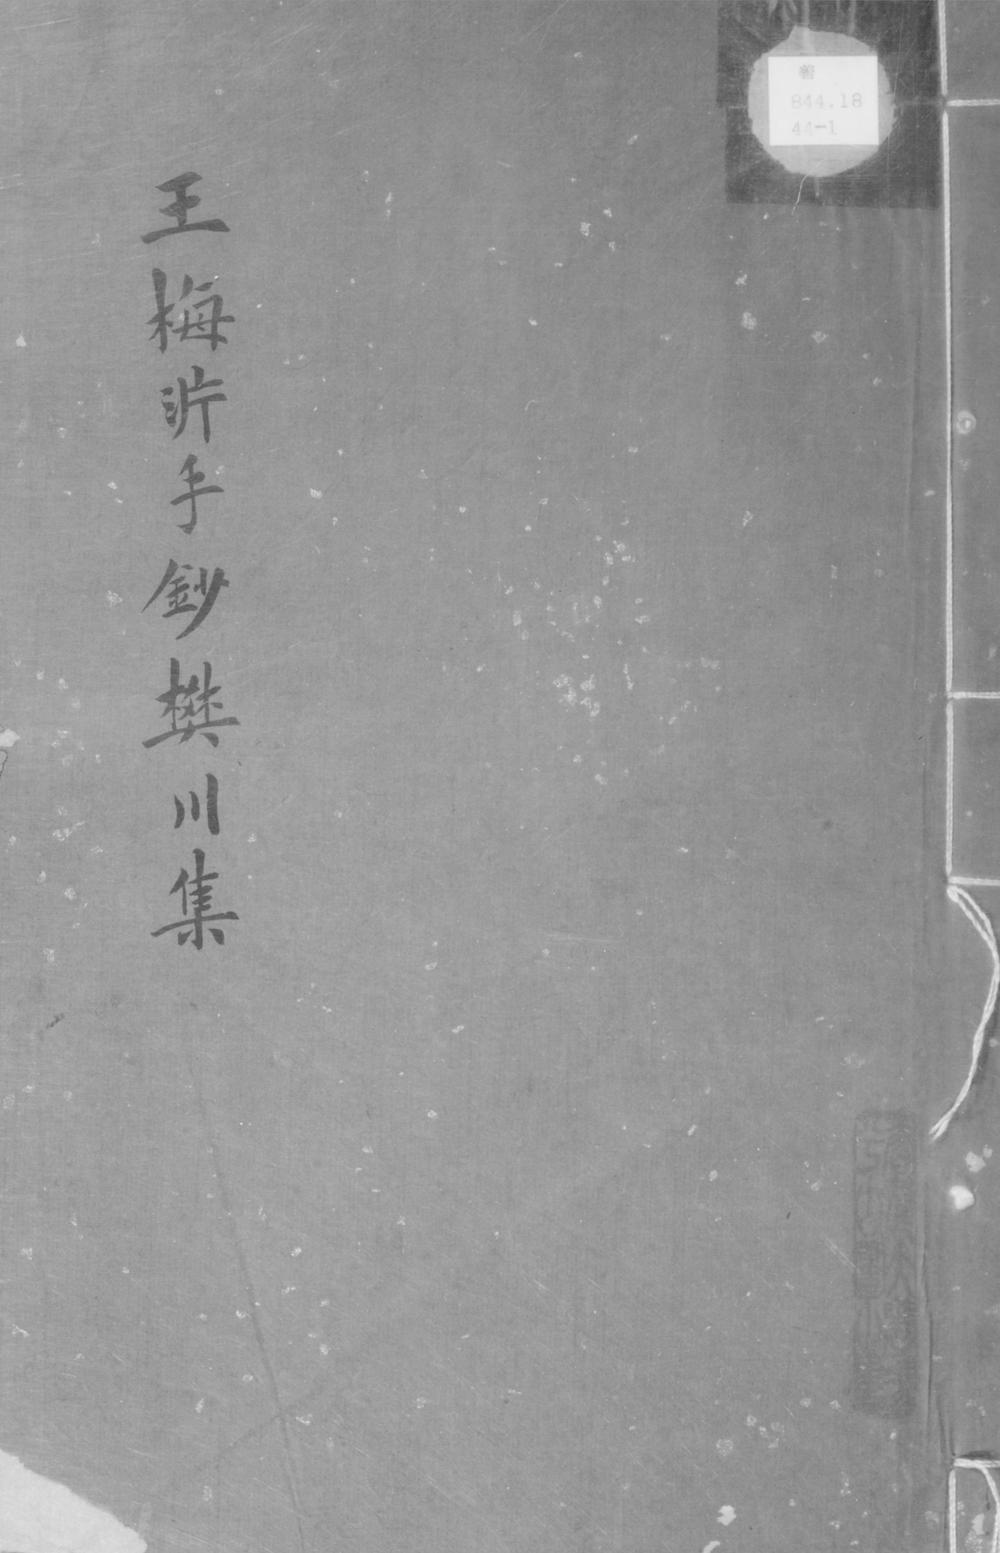 王梅泝手鈔樊川集
善
844.18
44-1